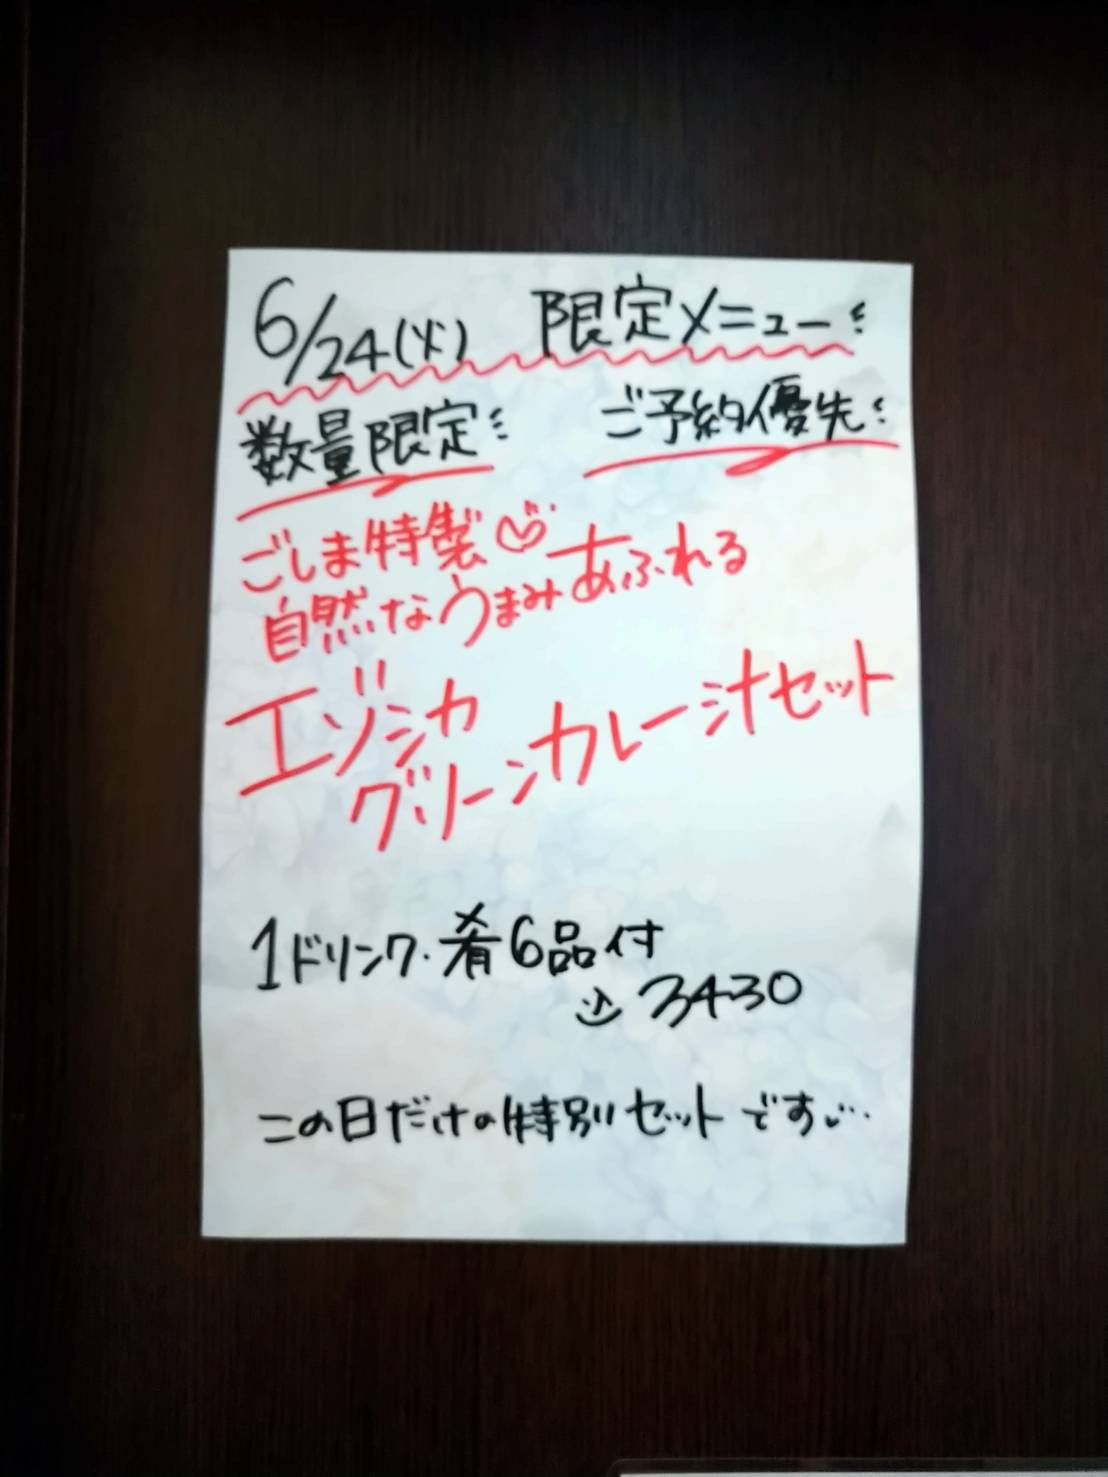 6/24(火) 限定メニュー
数量限定 ご予約優先
ごしま特製♡
自然なうまみあふれる
エゾシカ
グリーンカレー汁セット
1ドリンク・肴6品付
3430
この日だけの特別セットです